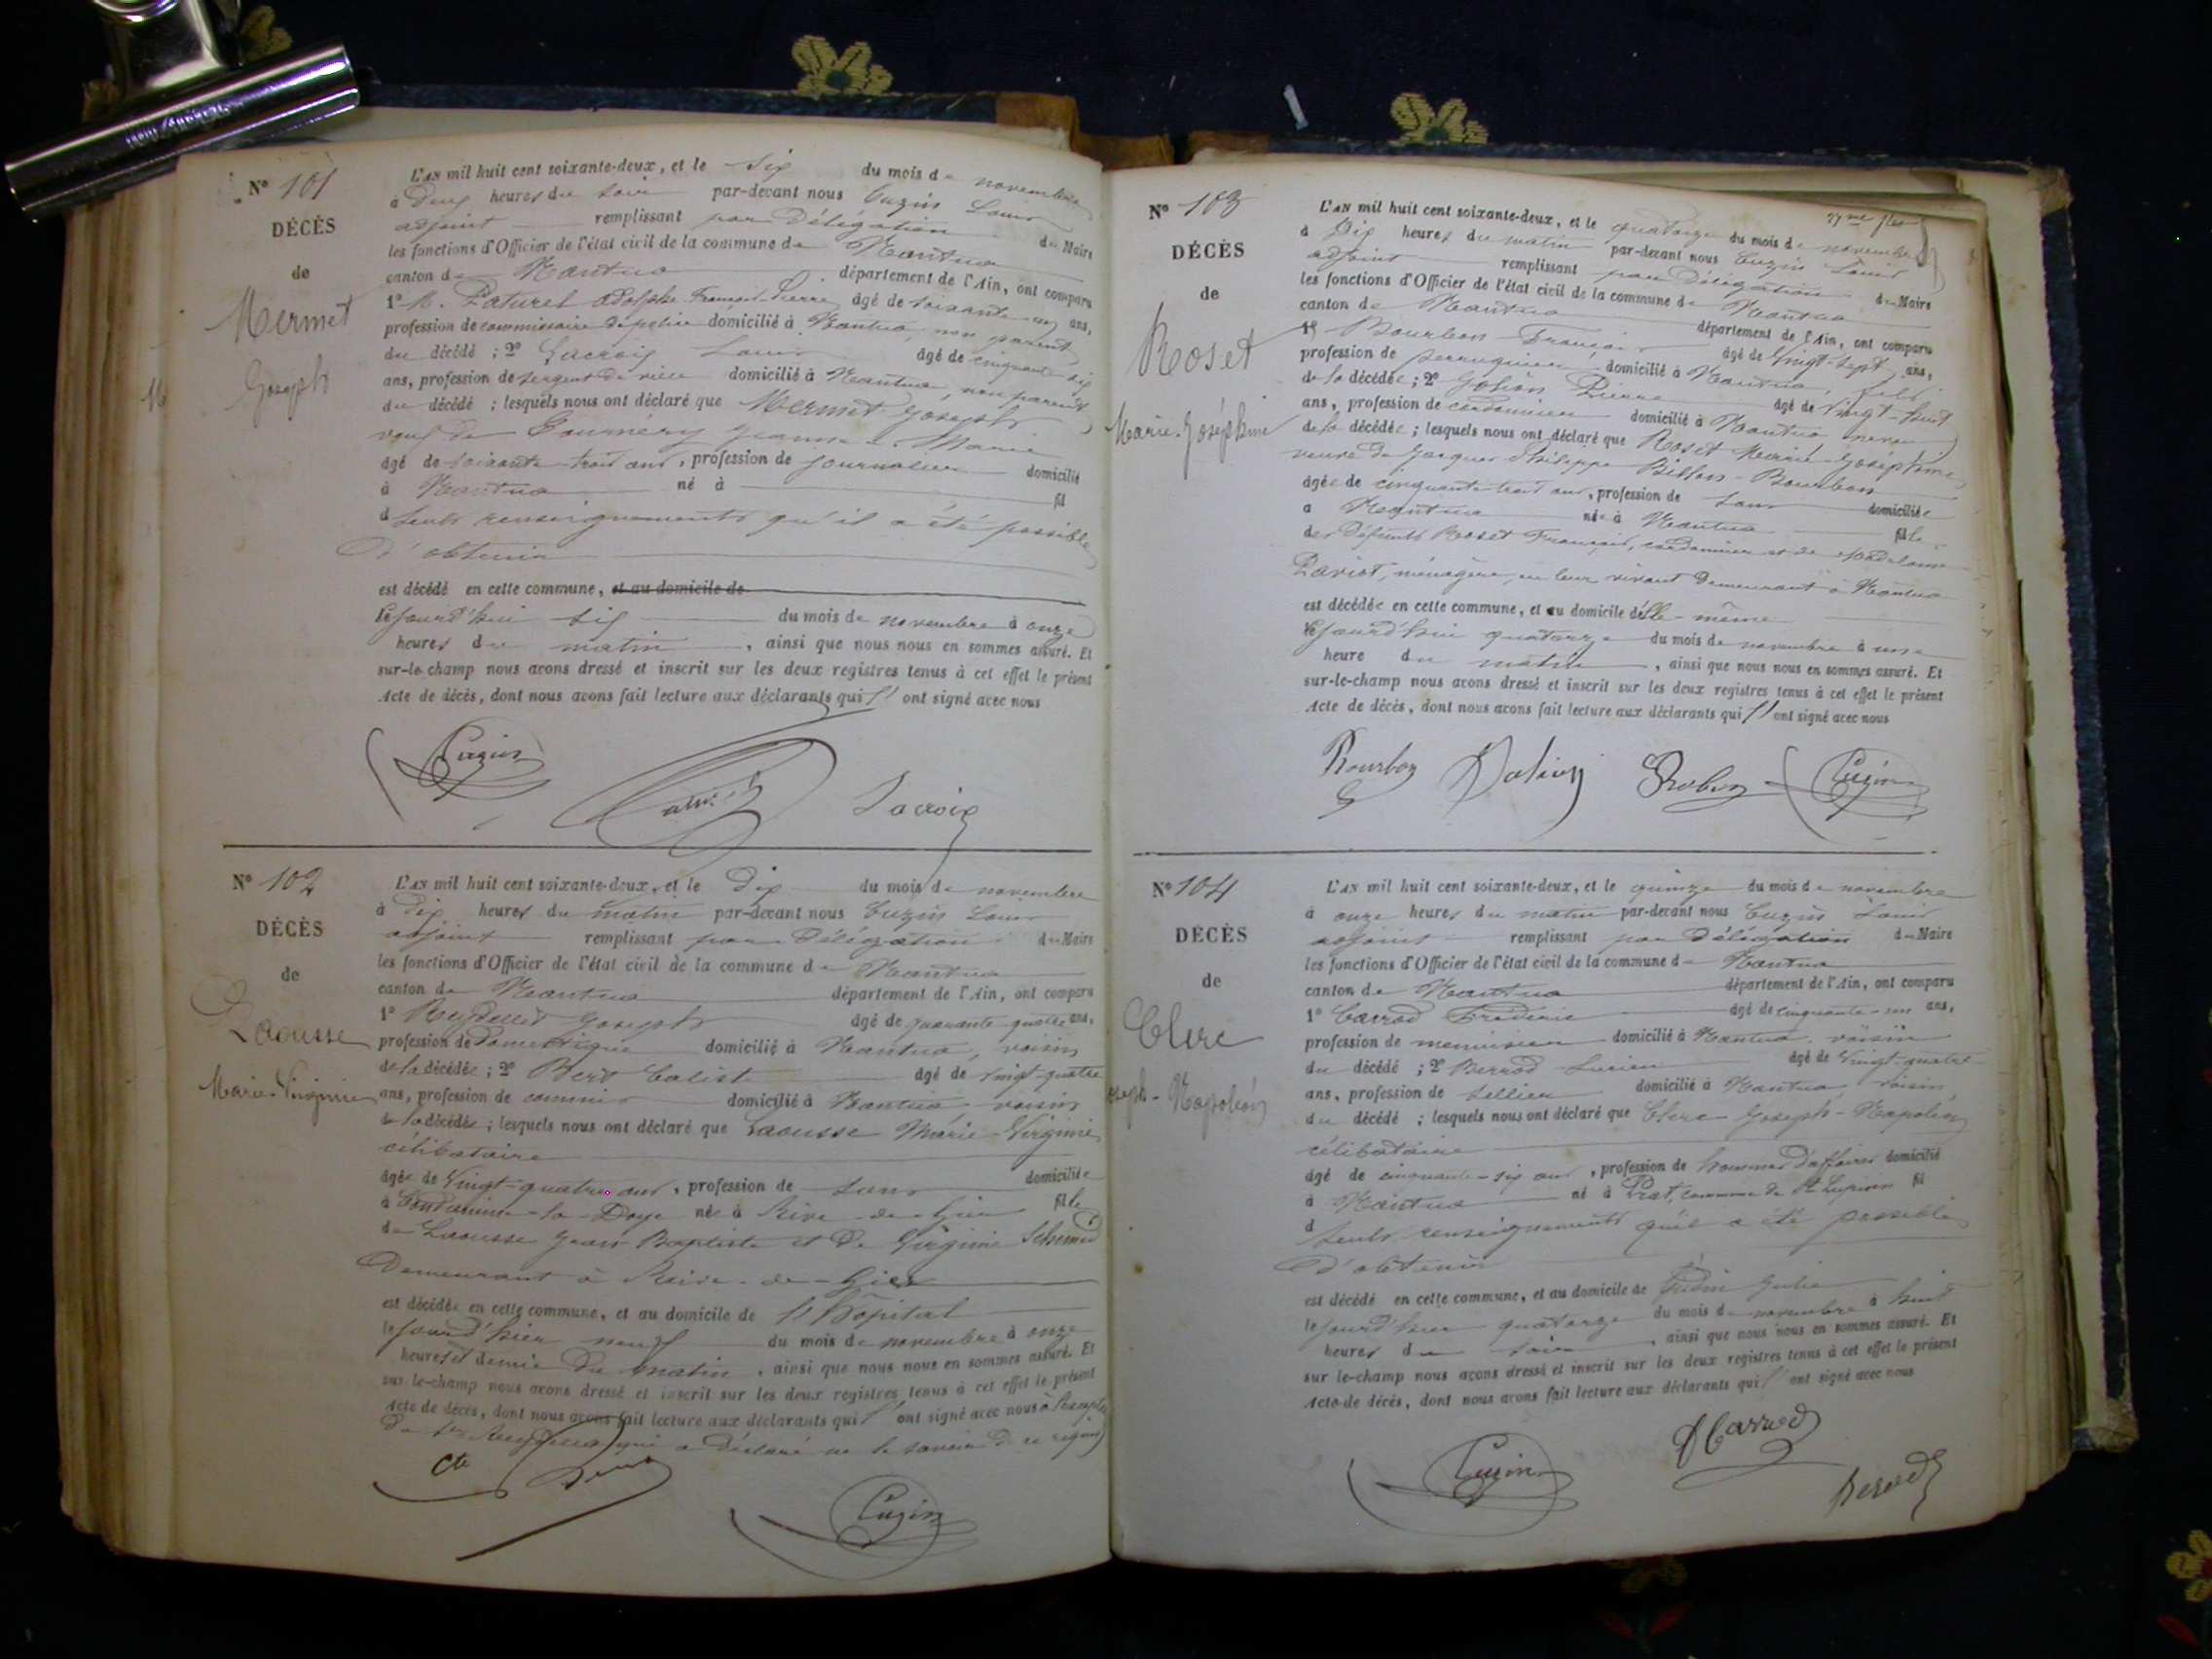 N° 101
DÉCÈS
de
Mermet
Joseph
L'AN mil huit cent soixante-deux, et le six du mois de novembre
à deux heures du soir par-devant nous Cuzin Louis
adjoint remplissant par Délégation du Maire
les fonctions d'Officier de l'état civil de la commune de Nantua
canton de Nantua département de l'Ain, ont comparu
1° M. Paturel adolphe François Pierre âgé de soixante un ans,
profession de commissaire de police domicilié à Nantua, non parent
du décédé ; 2° Lacroix Louis âgé de cinquante six
ans, profession de sergent de ville domicilié à Nantua, non parent
du décédé ; lesquels nous ont déclaré que Mermet Joseph
veuf de Jeanne Marie
âgé de soixante trois ans, profession de journalier domicilié
à Nantua né à fil
d seuls renseignements qu'il a été possible
d'obtenir
est décédé en cette commune, et au domicile de
le jourd'hui six du mois de novembre à onze
heures du matin, ainsi que nous nous en sommes assuré. Et
sur-le-champ nous avons dressé et inscrit sur les deux registres tenus à cet effet le présent
Acte de décès, dont nous avons fait lecture aux déclarants qui ont signé avec nous
Cuzin Lacroix
N° 102
DÉCÈS
de
Laousse
Marie-Virginie
L'AN mil huit cent soixante-deux, et le dix du mois de novembre
à dix heures du matin par-devant nous Cuzin Louis
adjoint remplissant par Délégation du Maire
les fonctions d'Officier de l'état civil de la commune de Nantua
canton de Nantua département de l'Ain, ont comparu
1° Reydellet Joseph âgé de quarante-quatre ans,
profession de Domestique domicilié à Nantua, voisin
de la décédée ; 2° Bert Caliste âgé de vingt-quatre
ans, profession de commis domicilié à Nantua, voisin
de la décédée ; lesquels nous ont déclaré que Laousse Marie-Virginie
célibataire
âgée de vingt-quatre ans, profession de sans domiciliée
à Condamine-la-Doye née à Rive-de-Gier fille
de Laousse Jean Baptiste et de Virginie
Demeurant à Rive-de-Gier
est décédée en cette commune, et au domicile de l'hôpital
le jourd'hier neuf du mois de novembre à onze
heures et demie du matin, ainsi que nous nous en sommes assuré. Et
sur-le-champ nous avons dressé et inscrit sur les deux registres tenus à cet effet le présent
Acte de décès, dont nous avons fait lecture aux déclarants qui ont signé avec nous
qui a déclaré ne le savoir de ce requis
Cuzin
N° 103
DÉCÈS
de
Roset
Marie-Joséphine
L'AN mil huit cent soixante-deux, et le quatorze du mois de novembre
à dix heures du matin par-devant nous Cuzin Louis
adjoint remplissant par Délégation du Maire
les fonctions d'Officier de l'état civil de la commune de Nantua
canton de Nantua département de l'Ain, ont comparu
1° Bourbon François âgé de vingt-sept ans,
profession de perruquier domicilié à Nantua, fils
de la décédée ; 2° Pierre âgé de vingt-huit
ans, profession de cordonnier domicilié à Nantua, neveu
de la décédée ; lesquels nous ont déclaré que Roset Marie-Joséphine
veuve de Jacques Philippe Billon-Bourbon
âgée de cinquante trois ans, profession de sans domiciliée
à Nantua née à Nantua fille
des défunts Roset François, cordonnier et de Madelaine
Pariot, ménagère, en leur vivant demeurant à Nantua
est décédée en cette commune, et au domicile d'elle-même
le jourd'hui quatorze du mois de novembre à une
heure du matin, ainsi que nous nous en sommes assuré. Et
sur-le-champ nous avons dressé et inscrit sur les deux registres tenus à cet effet le présent
Acte de décès, dont nous avons fait lecture aux déclarants qui ont signé avec nous
Bourbon Cuzin
N° 104
DÉCÈS
de
Clerc
Joseph-Napoléon
L'AN mil huit cent soixante-deux, et le quinze du mois de novembre
à onze heures du matin par-devant nous Cuzin Louis
adjoint remplissant par délégation du Maire
les fonctions d'Officier de l'état civil de la commune de Nantua
canton de Nantua département de l'Ain, ont comparu
1° Carrod Frédéric âgé de cinquante-un ans,
profession de menuisier domicilié à Nantua, voisin
du décédé ; 2° Berrod Lucien âgé de vingt-quatre
ans, profession de sellier domicilié à Nantua, voisin
du décédé ; lesquels nous ont déclaré que Clerc Joseph-Napoléon
célibataire
âgé de cinquante-six ans, profession de hommes d'affaires domicilié
à Nantua né à Prat, commune de St Lupicin fil
d seuls renseignements qu'il a été possible
d'obtenir
est décédé en cette commune, et au domicile de Julie
le jourd'hier quatorze du mois de novembre à huit
heures du soir, ainsi que nous nous en sommes assuré. Et
sur le-champ nous avons dressé et inscrit sur les deux registres tenus à cet effet le présent
Acte de décès, dont nous avons fait lecture aux déclarants qui ont signé avec nous
Cuzin Carrod Berrod